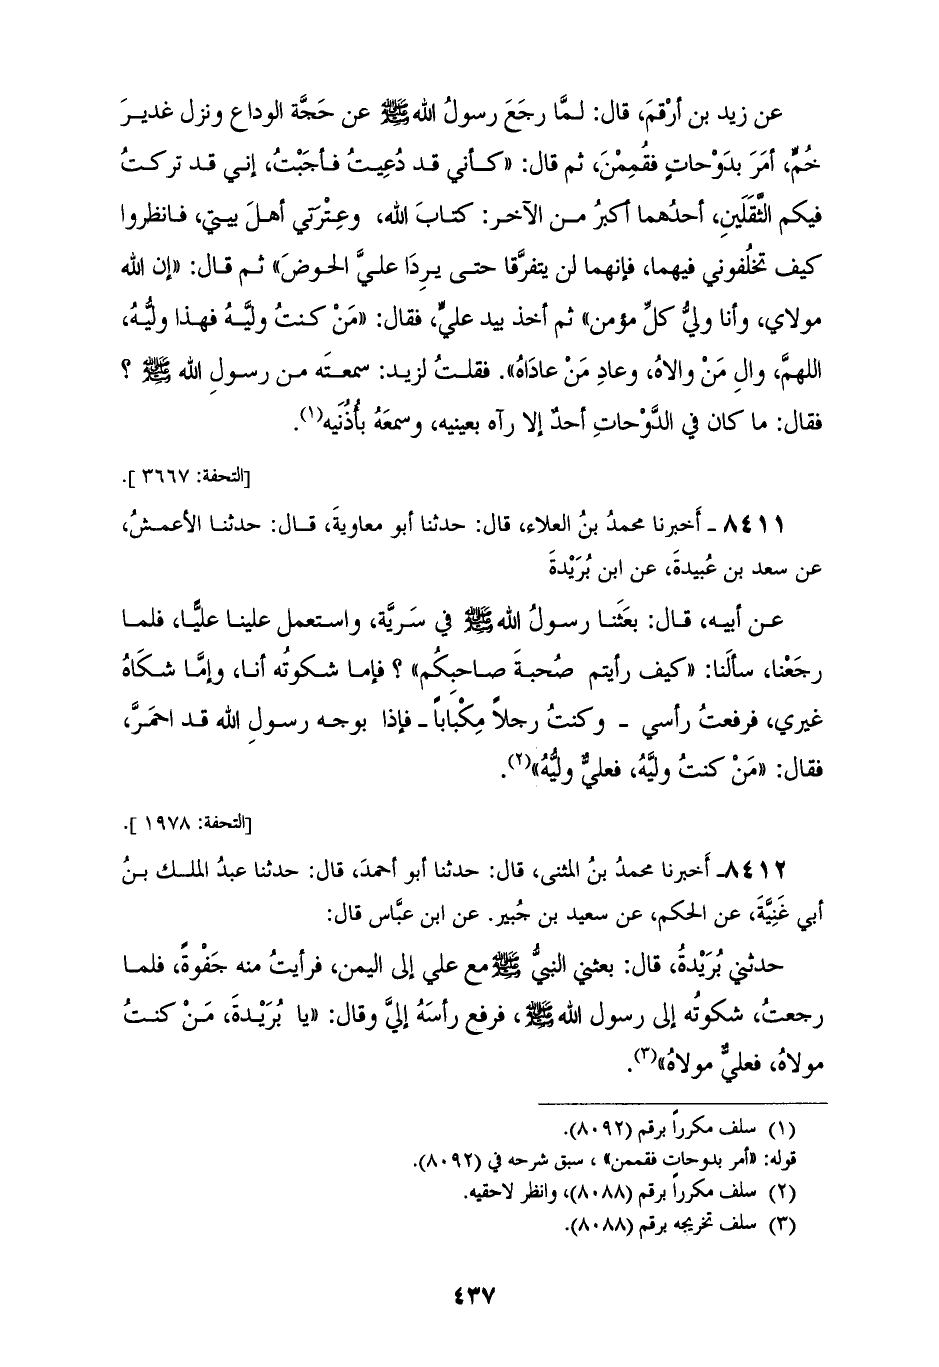 عن زيد بن أرْقمَ، قال: لـمَّا رجَعَ رسولُ الله ﷺ عن حَجَّة الوداع ونزل غديـرَ
خُمٍّ، أمَرَ بدَوْحاتٍ فقُمِمْنَ، ثم قال: «كـأني قد دُعِيتُ فـأجَبْتُ، إنـي قـد تركـتُ
فيكم الثَّقَلَينِ، أحدُهما أكبرُ مـن الآخـر: كتـابَ الله، وعِتْرَتي أهـلَ بيـتي، فـانظروا
كيف تخلُفوني فيهما، فإنهما لن يتفرَّقا حتـى يـرِدَا علـيَّ الحـوضَ» ثـم قـال: «إن الله
مولاي، وأنا وليُّ كلِّ مؤمن» ثم أخذ بيد عليٍّ، فقال: «مَنْ كنـتُ وليَّـهُ فهـذا وليُّـهُ،
اللهمَّ، والِ مَنْ والاهُ، وعادِ مَنْ عادَاهُ». فقلـتُ لزيـد: سمعـتَه مـن رسـولِ الله ﷺ ؟
فقال: ما كان في الدَّوْحاتِ أحدٌ إلا رآه بعينيه، وسمعَهُ بأُذُنَيه(١).
[التحفة: ٣٦٦٧ ].
٨٤١١ ـ أَخبرنا محمدُ بنُ العلاء، قال: حدثنا أبو معاويةَ، قـال: حدثنـا الأعمـشُ،
عن سعد بن عُبيدةَ، عن ابن بُرَيْدةَ
عـن أبيـه، قـال: بعَثَنـا رسـولُ الله ﷺ في سَريَّة، واستعمل علينـا عليًّـا، فلمـا
رجَعْنا، سألَنا: «كيف رأيتم صُحبـةَ صـاحبِكُم» ؟ فإمـا شـكوتُه أنـا، وإمَّـا شـكَاهُ
غيري، فرفعتُ رأسي ـ وكنتُ رجلاً مِكْبَاباً ـ فإذا بوجـه رسـولِ الله قـد احمَـرَّ،
فقال: «مَنْ كنتُ وليَّهُ، فعليٌّ وليُّهُ»(٢).
[التحفة: ١٩٧٨ ].
٨٤١٢ـ أَخبرنا محمدُ بنُ المثنى، قال: حدثنا أبو أحمدَ، قال: حدثنا عبدُ الملـك بـنُ
أبي غَنِيَّةَ، عن الحكم، عن سعيد بن جُبير. عن ابن عبَّاس قال:
حدثني بُرَيْدةُ، قال: بعثني النبيُّ ﷺ مع علي إلى اليمن، فرأيتُ منه جَفْوةً، فلمـا
رجعتُ، شكوتُه إلى رسول الله ﷺ ، فرفع رأسَهُ إليَّ وقال: «يا بُرَيْـدةَ، مَـنْ كنـتُ
مولاهُ، فعليٌّ مولاهُ»(٣).
(١) سلف مكرراً برقم (٨٠٩٢).
قوله: «أمر بدوحات فقممن» ، سبق شرحه في (٨٠٩٢).
(٢) سلف مكرراً برقم (٨٠٨٨)، وانظر لاحقيه.
(٣) سلف تخريجه برقم (٨٠٨٨).
٤٣٧